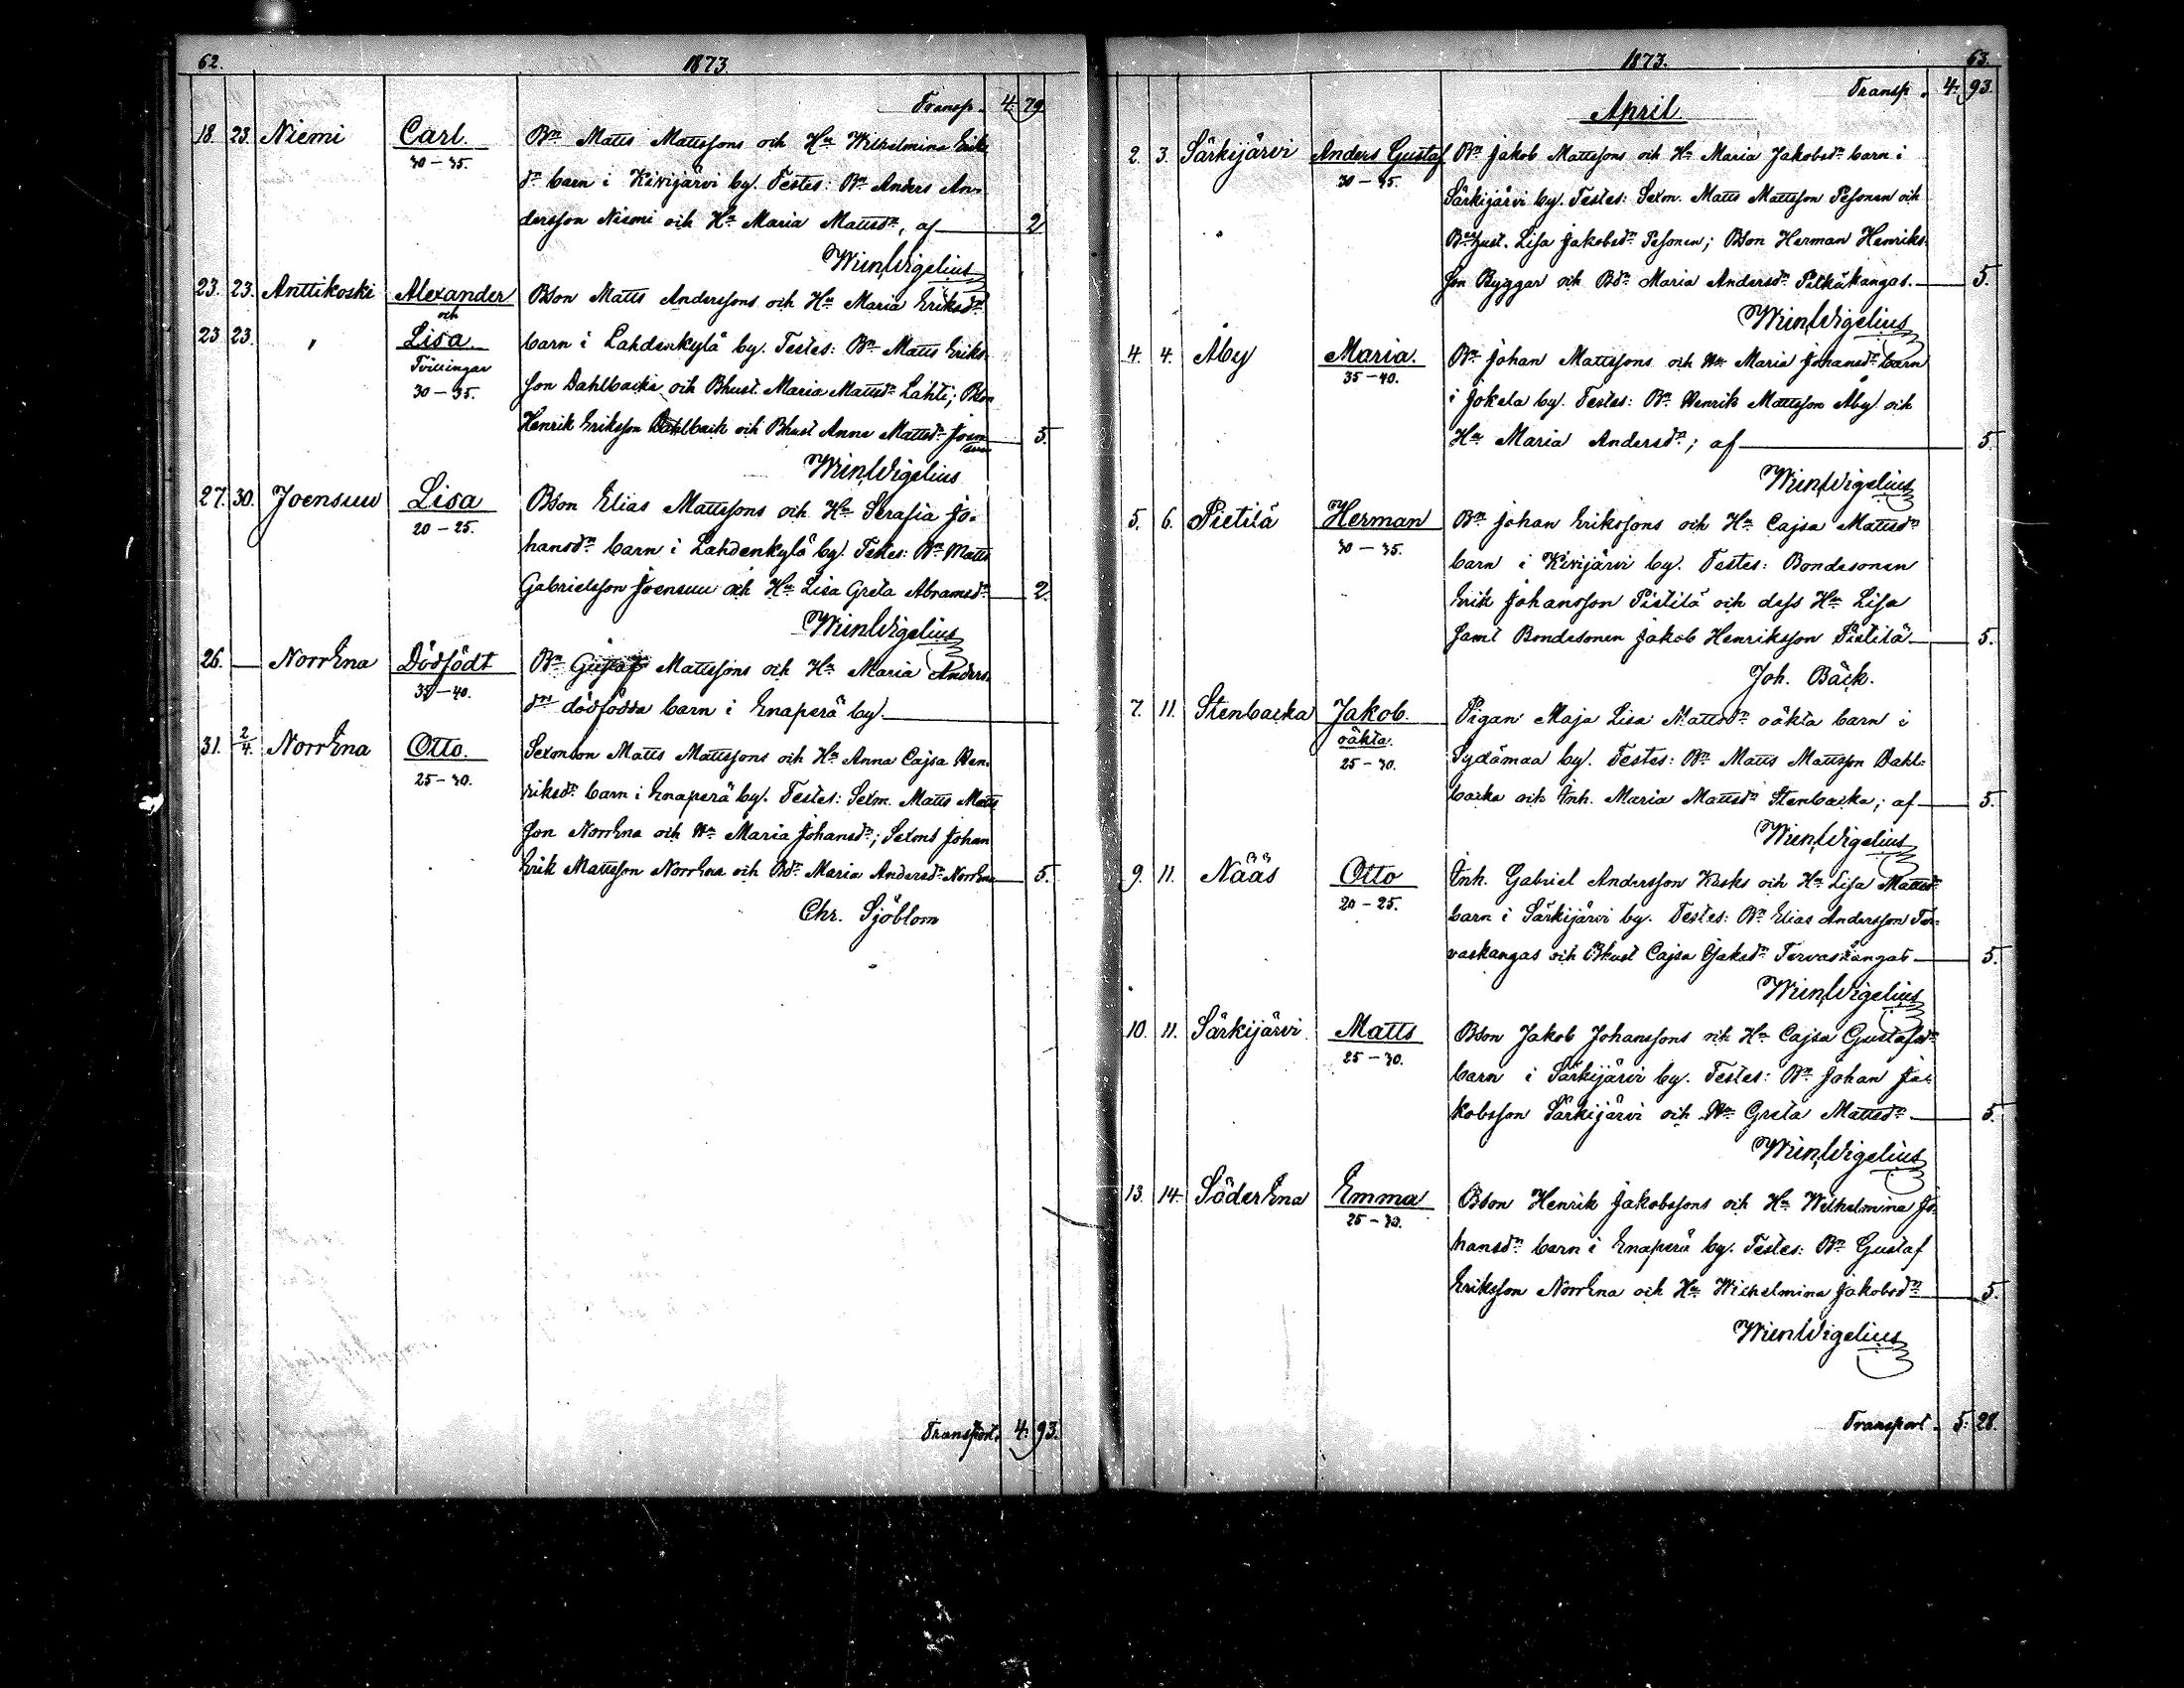 62. 1873.
Transp. 4: 79.
18. 23. Niemi Carl. Bn Matts Mattssons och Hu Wilhelmina Eriks
30–35. dr barn i Kivijärvi by. Testes: Bn Anders An-
dersson Niemi och Hu Maria Mattsdr, af 2
Wilh. Wigelius
23. 23. Anttikoski Alexander Bson Matts Anderssons och Hu Maria Eriksdr
och
23. 23. " Lisa. barn i Lahdenkylä by. Testes: Bn Matts Eriks-
Tvillingar
30–35. son Dahlbacka och Bhust. Maria Mattsdr Lahti; Bson
Henrik Eriksson Dahlback och Bhust Anna Mattsdr Joen 5.
suu
Wilh. Wigelius
27. 30. Joensuu Lisa Bson Elias Mattssons och Hu Serafia Jo-
20–25. hansdr barn i Lahdenkylä by. Testes: Bn Matts
Gabrielsson Joensuu och Hu Lisa Greta Abramsdr 2.
Wilh. Wigelius
26. — NorrEna Dödfödt Bn Gustaf Mattssons och Hu Maria Anders-
35–40. drs dödfödda barn i Enaperä by.
31. 2/4. NorrEna Otto. Sexmson Matts Mattssons och Hu Anna Cajsa Hen-
25–30. riksdr barn i Enaperä by. Testes: Sexm. Matts Matts
son NorrEna och Hu Maria Johansdr; Sexms Johan
Erik Mattsson NorrEna och Bdr Maria Andersdr NorrEna 5.
Chr. Sjöblom
Transport. 4: 93.
1873. 63.
Transp. 4: 93.
April.
2. 3. Särkijärvi Anders Gustaf Bn Jakob Mattssons och Hu Maria Jakobsdr barn i
30–35. Särkijärvi by. Testes: Sexm. Matts Mattsson Pesonen och
hust. Lisa Jakobsdr Pesonen; Bson Herman Henriks-
son Byggar och Bdr Maria Andersdr Pitkäkangas. 5.
Wilh. Wigelius
4. 4. Åby Maria. Bn Johan Mattssons och Hu Maria Johansdr barn
35–40. i Jokela by. Testes: Bn Henrik Mattsson Åby och
Hu Maria Andersdr; af 5.
Wilh. Wigelius
5. 6. Pietilä Herman Bn Johan Erikssons och Hu Cajsa Mattsdr
30–35. barn i Kivijärvi by. Testes: Bondesonen
Erik Johansson Pietilä och dess Hu Lisa
samt Bondesonen Jakob Henriksson Pietilä 5.
Joh. Bäck.
7. 11. Stenbacka Jakob. Pigan Maja Lisa Mattsdr oäkta barn i
oäkta.
25–30. Sydämaa by. Testes: Bn Matts Mattsson Dahl-
backa och Inh. Maria Mattsdr Stenbacka; af 5.
Wilh. Wigelius
9. 11. Nääs Otto Inh. Gabriel Andersson Kesks och Hu Lisa Mattsdr
20–25. barn i Särkijärvi by. Testes: Bn Elias Andersson Ter-
vaskangas och Bhust Cajsa Isaksdr Tervaskangas 5.
Wilh. Wigelius
10. 11. Särkijärvi. Matts Bson Jakob Johanssons och Hu Cajsa Gustafsdr
25–30. barn i Särkijärvi by. Testes: Bn Johan Ja-
kobsson Särkijärvi och Hu Greta Mattsdr 5.
Wilh. Wigelius
13. 14. SöderEna Emma Bson Henrik Jakobssons och Hu Wilhelmina Jo-
25–30. hansdr barn i Enaperä by. Testes: Bn Gustaf
Eriksson NorrEna och Hu Wilhelmina Jakobsdr 5.
Wilh. Wigelius
Transport. 5: 28.